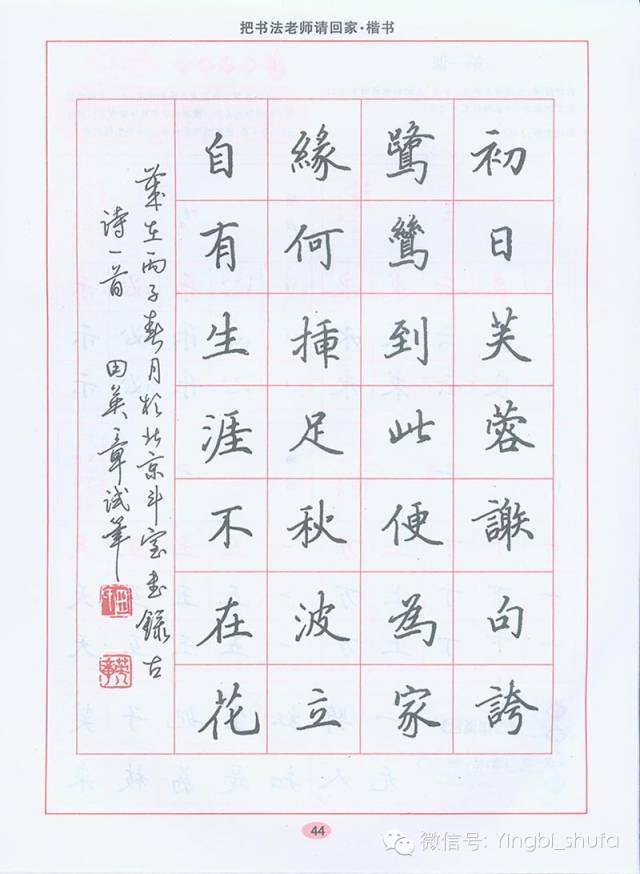 把书法老师请回家·楷书
初日芙蓉謝句誇
鷺鷥到此便為家
緣何揷足秋波立
自有生涯不在花
岁在丙子春月於北京斗室书録古
诗一首 田英章试筆
44
微信号: Yingbi_shufa